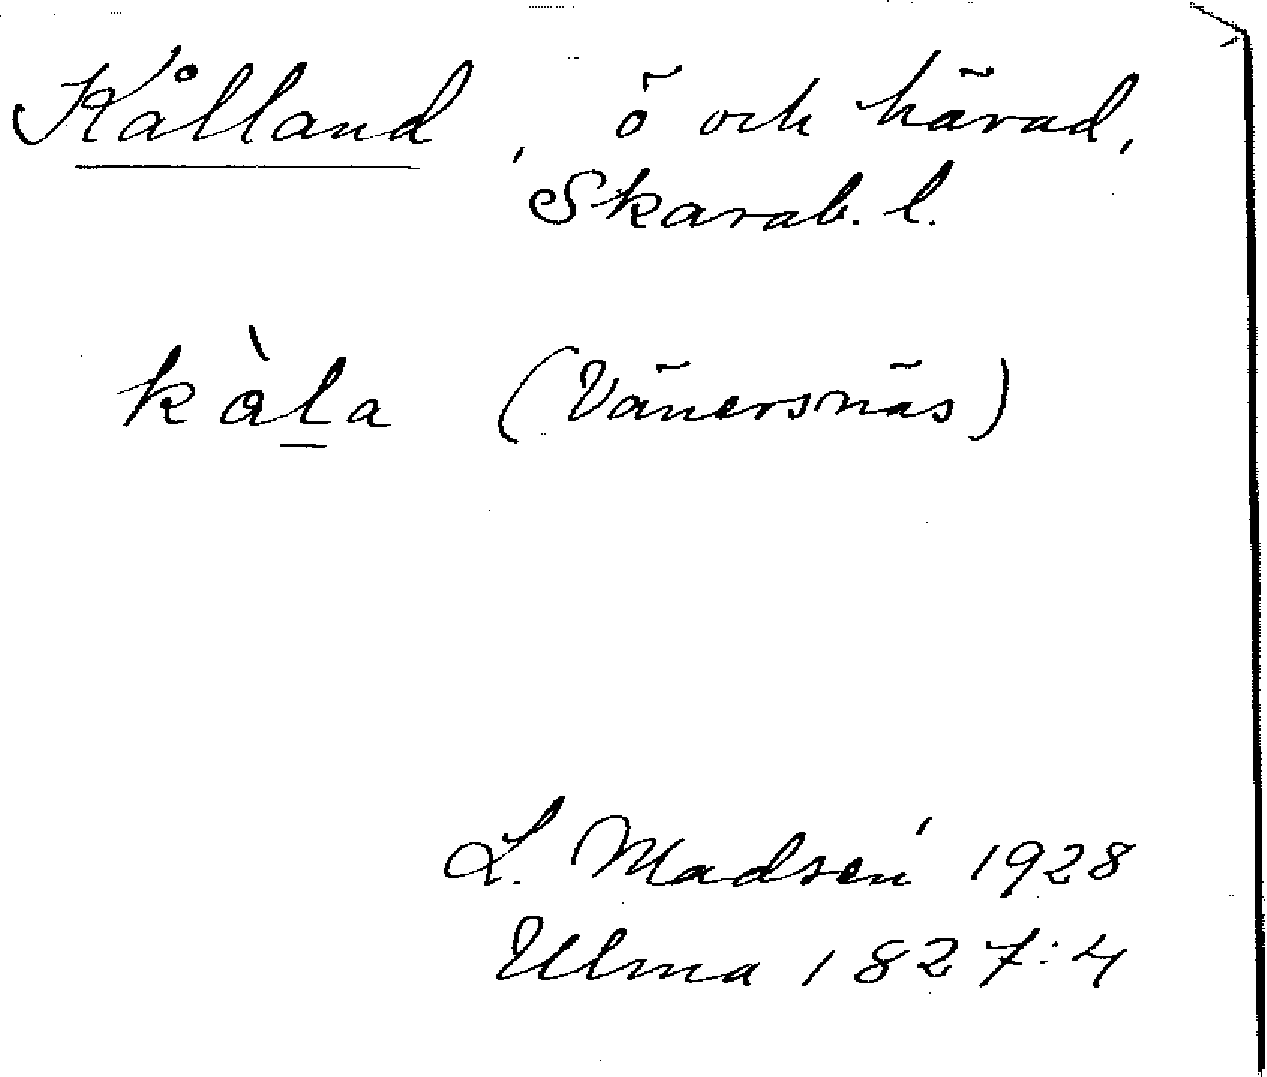 Kålland, ö och härad,
Skarab. l.
kàla (Vänersnäs)
L. Madsén 1928
Ulma 1827:4